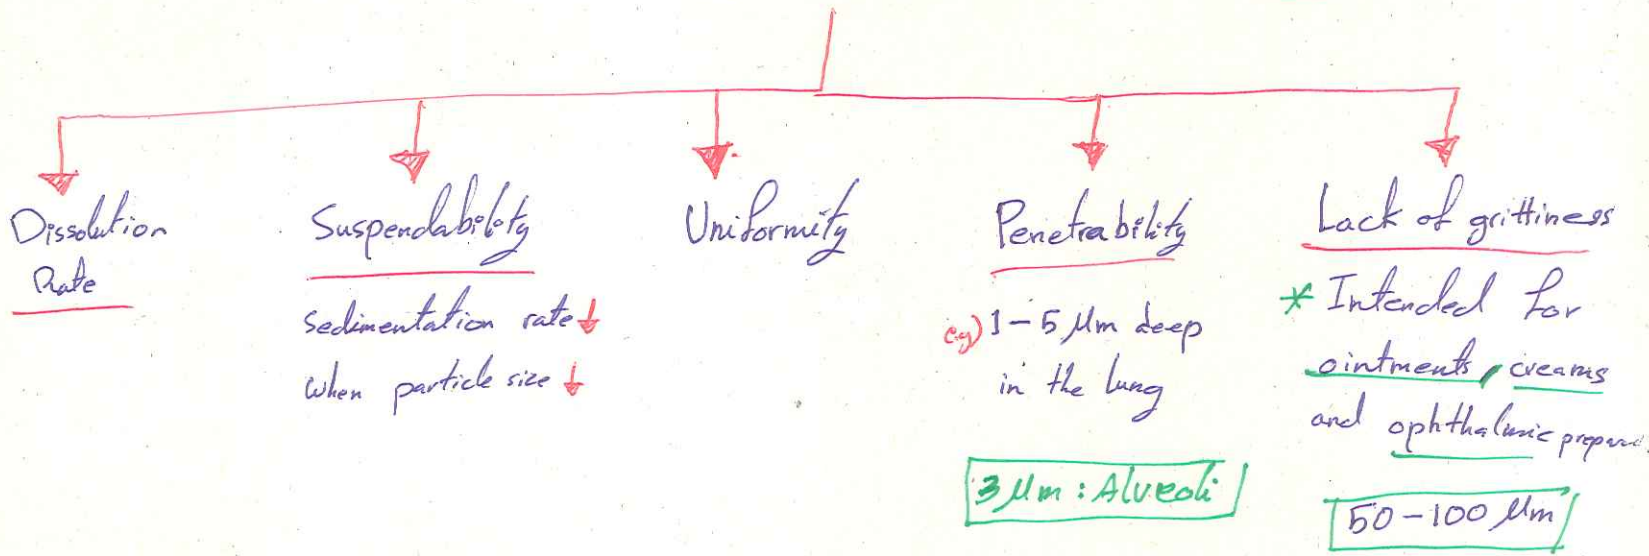 Dissolution
Rate
Suspendability
sedimentation rate ↓
when particle size ↓
Uniformity
Penetrability
e.g) 1-5 µm deep
in the lung
3 µm : Alveoli
Lack of grittiness
* Intended for
ointments, creams
and ophthalmic
50-100 µm